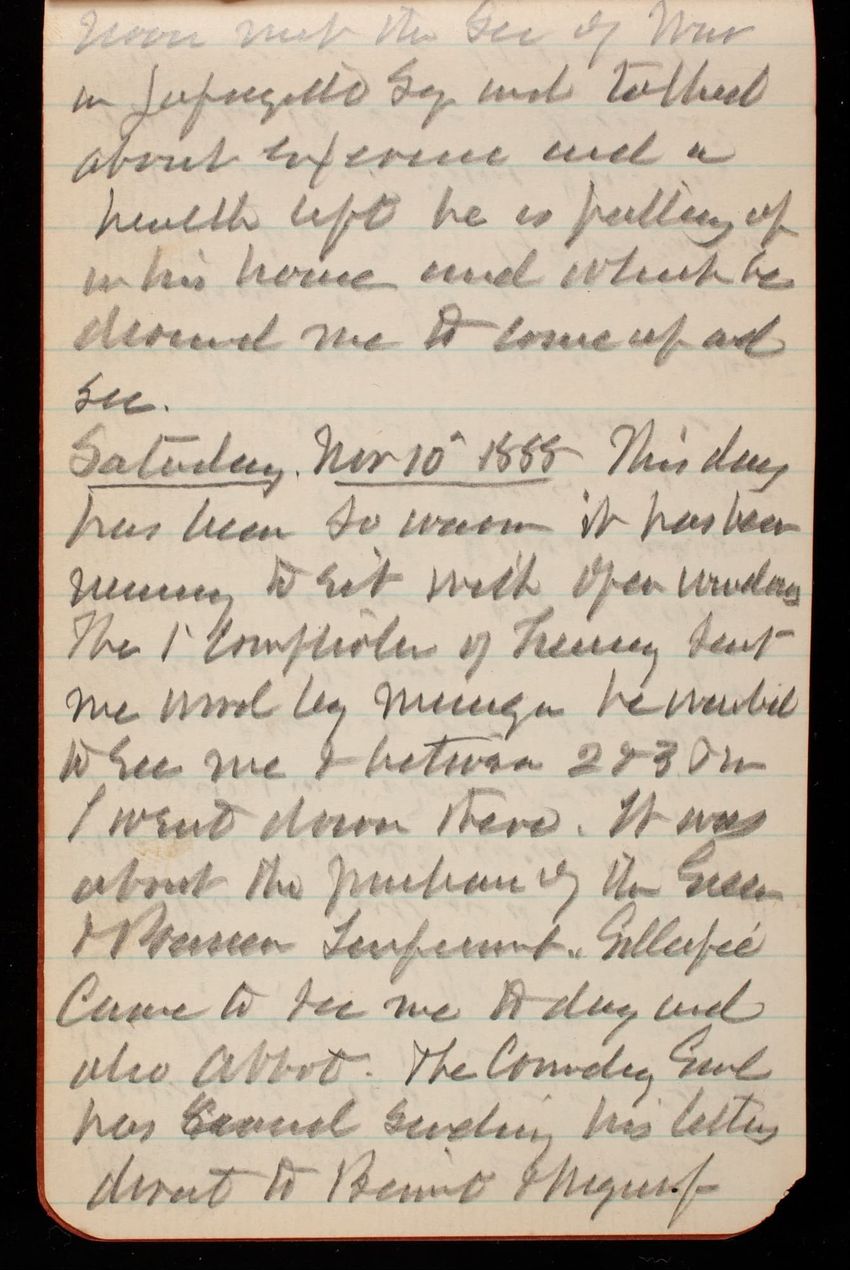 noon met the Sec of War
in Lafayette Sq and talked
about and a
health lift he is putting up
in his house and which he
desired me to come up and
see.
Saturday. Nov 10" 1888 This day
has been so warm it has been
necessary to sit with open windows
The 1' Comptroller of Treasy sent
me word by messenger he wanted
to see me & between 2 & 3
I went down there. It was
about the purchase of the Green
&
Came to see me to day and
also Abbot. The Comdg Genl
has sending his letters
direct to &